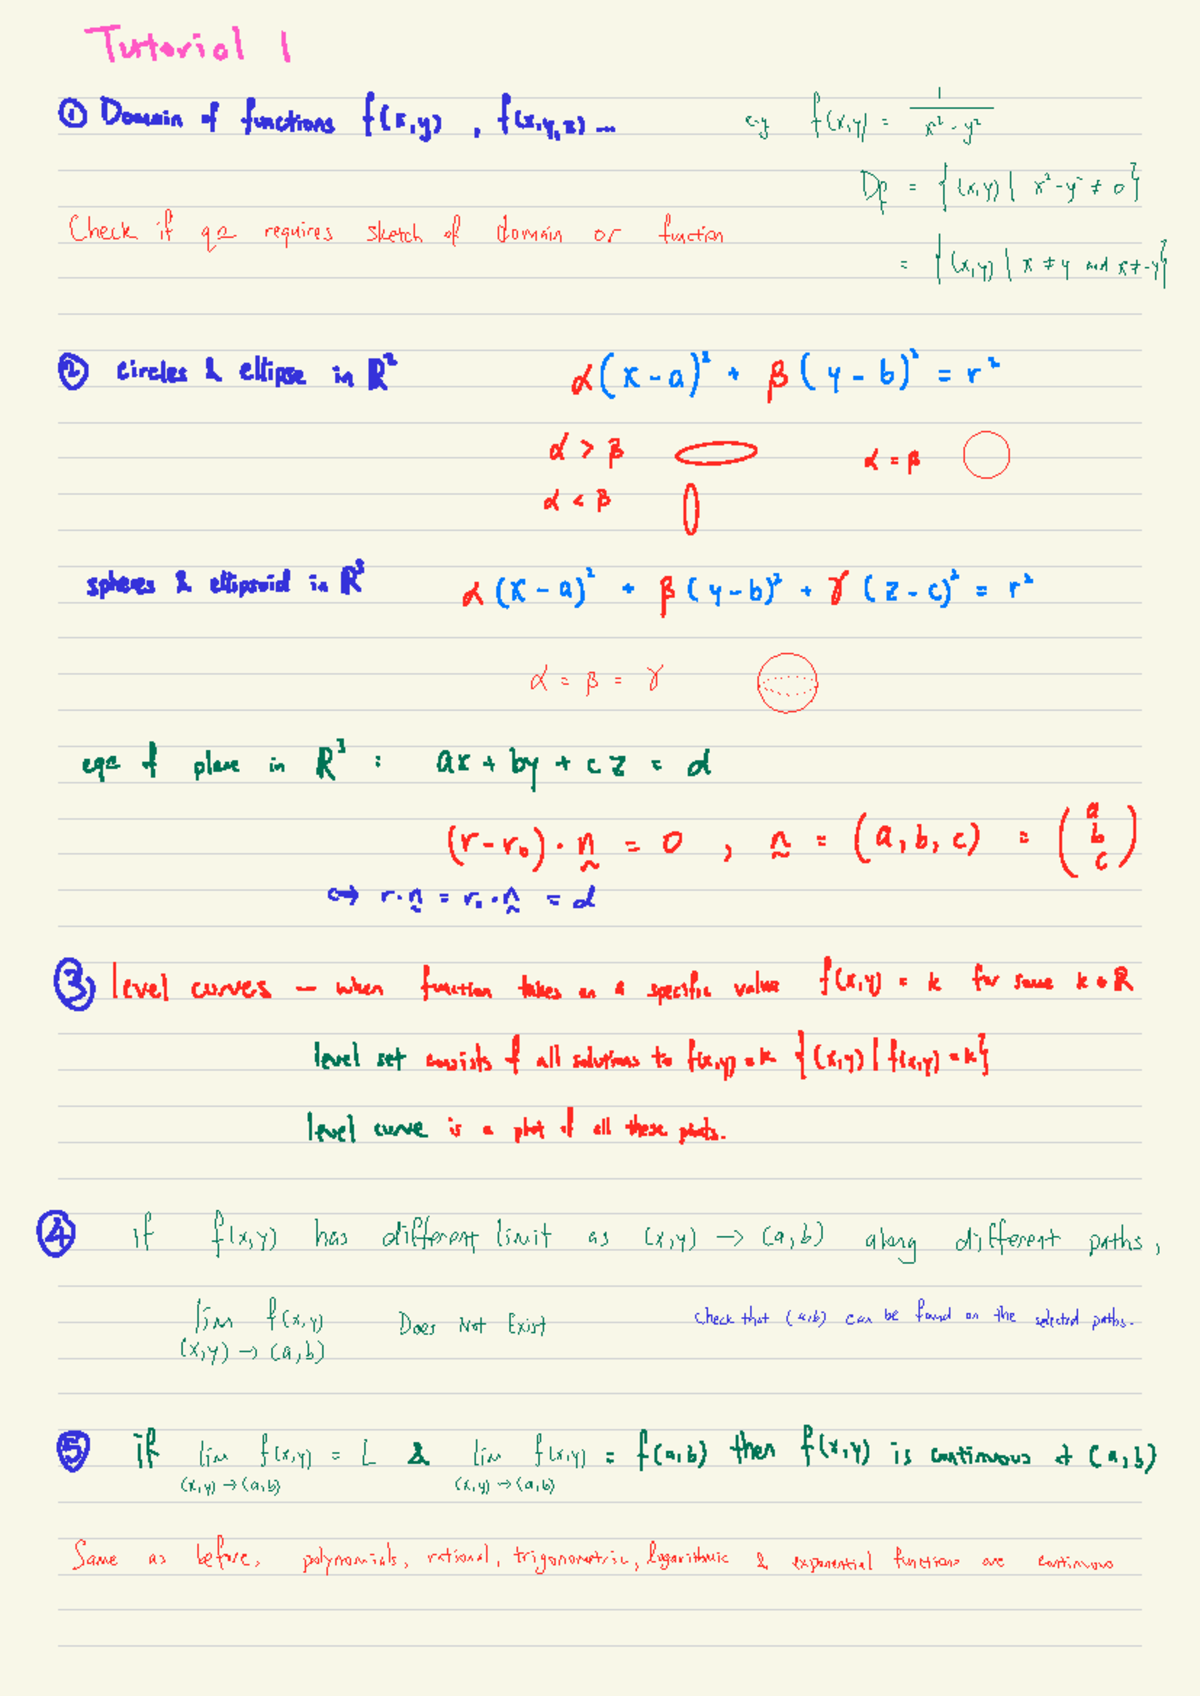 Tutorial 1
① Domain of functions f(x,y) , f(x,y,z) ...
eg f(x,y) = 1/(x² - y²)
D_f = {(x,y) | x² - y² ≠ 0}
Check if qn requires sketch of domain or function
= {(x,y) | x ≠ y and x ≠ -y}
② circles & ellipse in ℝ² α(x-a)² + β(y-b)² = r²
α > β α = β
α < β
spheres & ellipsoid in ℝ³ α(x-a)² + β(y-b)² + γ(z-c)² = r²
α = β = γ
eqn of plane in ℝ³ : ax + by + cz = d
(r - r₀) · n = 0 , n = (a, b, c) = (a b c)
↔ r·n = r₀·n = d
③ level curves – when function takes on a specific value f(x,y) = k for some k ∈ ℝ
level set consists of all solutions to f(x,y) = k {(x,y) | f(x,y) = k}
level curve is a plot of all these points.
④ if f(x,y) has different limit as (x,y) → (a,b) along different paths,
lim f(x,y) Does Not Exist check that (a,b) can be found on the selected paths.
(x,y) → (a,b)
⑤ if lim f(x,y) = L & lim f(x,y) = f(a,b) then f(x,y) is continuous at (a,b)
(x,y) → (a,b) (x,y) → (a,b)
Same as before, polynomials, rational, trigonometric, logarithmic & exponential functions are continuous